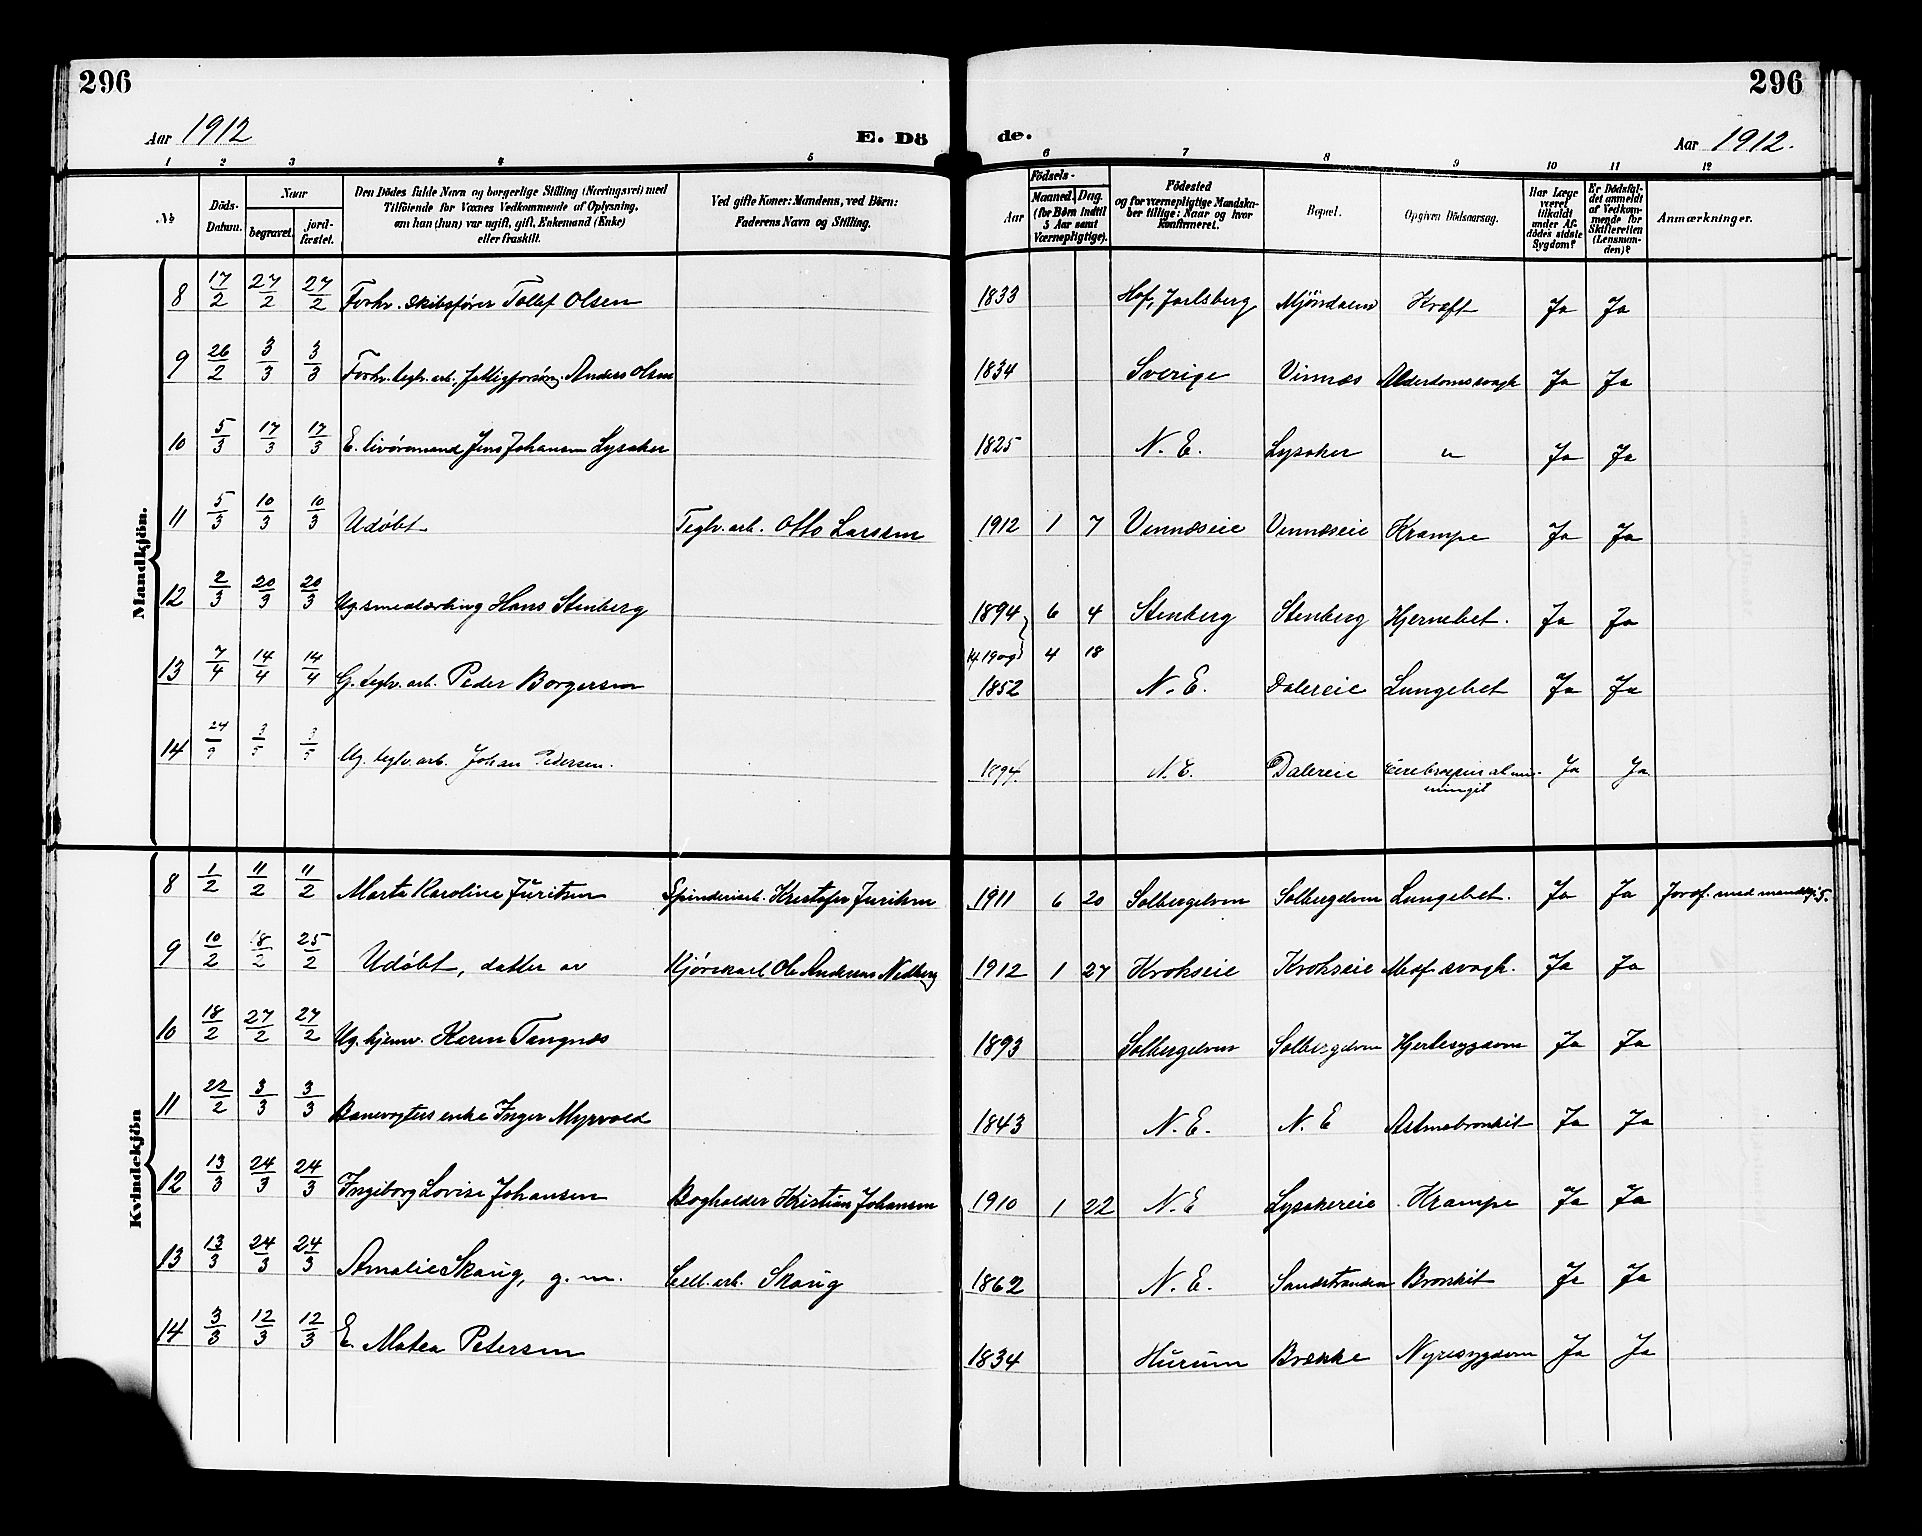 296
296
Aar 1912
E. Dö
de.
Aar 1912.
1 2 3 4 5 6 7 8 9 10 11 12
№ Döds-Datum. Naar begravet. jord-fæstet. Den Dödes fulde Navn og borgerlige Stilling (Næringsvei) med Tilföiende for Voxnes Vedkommende af Oplysning, om han (hun) var ugift, gift, Enkemand (Enke) eller fraskilt. Ved gifte Koner: Mandens, ved Börn: Faderens Navn og Stilling. Födsels- Aar Maaned. Dag. (for Börn indtil 3 Aar samt Værnepligtige). Födested og for værnepligtige Mandskaber tillige: Naar og hvor konfirmeret. Bopæl. Opgiven Dödsaarsag. Har Læge været tilkaldt under Afdödes sidste Sygdom? Er Dödsfaldet anmeldt af Vedkommende for Skifteretten (Lensmanden)? Anmærkninger.
Mandkjön.
8 17/2 27/2 27/2 Forhv. skibsfører Tollef Olsen 1833 Hof, Jarlsberg Mjöndalen Kræft Ja Ja
9 26/2 3/3 3/3 Forhv. teglv. arb. fattigforsørg. Anders Olsen 1834 Sverige Vinnæs Alderdomssvagh Ja Ja
10 5/3 17/3 17/3 E. livøremand Jens Johansen Lysaker 1825 N. E. Lysaker " Ja Ja
11 5/3 10/3 10/3 Udøbt Teglv. arb. Otto Larsen 1912 1 7 Vinnæseie Vinnæseie Krampe Ja Ja
12 2/3 20/3 20/3 Ug. smedlærling Hans Stenberg 1894 6 4 Stenberg Stenberg Hjernebet. Ja Ja
4 18
13 7/4 14/4 14/4 G. teglv. arb. Peder Borgersen 1852 N. E. Dalereie Lungebet Ja Ja
14 Ug. teglv. arb. Johan Pedersen. 1894. N. E. Dalereie Cerebrospinalmeningit Ja Ja
Kvindekjön
8 1/2 11/2 11/2 Marta Karoline Juritsen Spinderiarb. Kristofer Juritsen 1911 6 20 Solbergelven Solbergelven Lungebet. Ja Ja Jordf. med mandkj. 5.
9 10/2 18/2 25/2 Udøbt, datter av Kjørekarl Ole Andersen Nedberg 1912 1 27 Krokseie Krokseie Medf. svagh. Ja Ja
10 18/2 27/2 27/2 Ug. hjemv. Karen Tangnæs 1893 Solbergelven Solbergelven Hjertesygdom Ja Ja
11 22/2 3/3 3/3 Banevogters enke Inger Myrvold 1843 N. E. N. E Astmabronkit Ja Ja
12 13/3 24/3 24/3 Ingeborg Lovise Johansen Bogholder Kristian Johansen 1910 1 22 N. E Lysakereie Krampe Ja Ja
13 13/3 24/3 24/3 Amalie Skaug, g. m. Cell. arb. Skaug 1862 N. E. Sandstranden Bronkit Ja Ja
14 3/3 12/3 12/3 E. Matea Petersen 1834 Hurum Brekke Nyresygdom Ja Ja